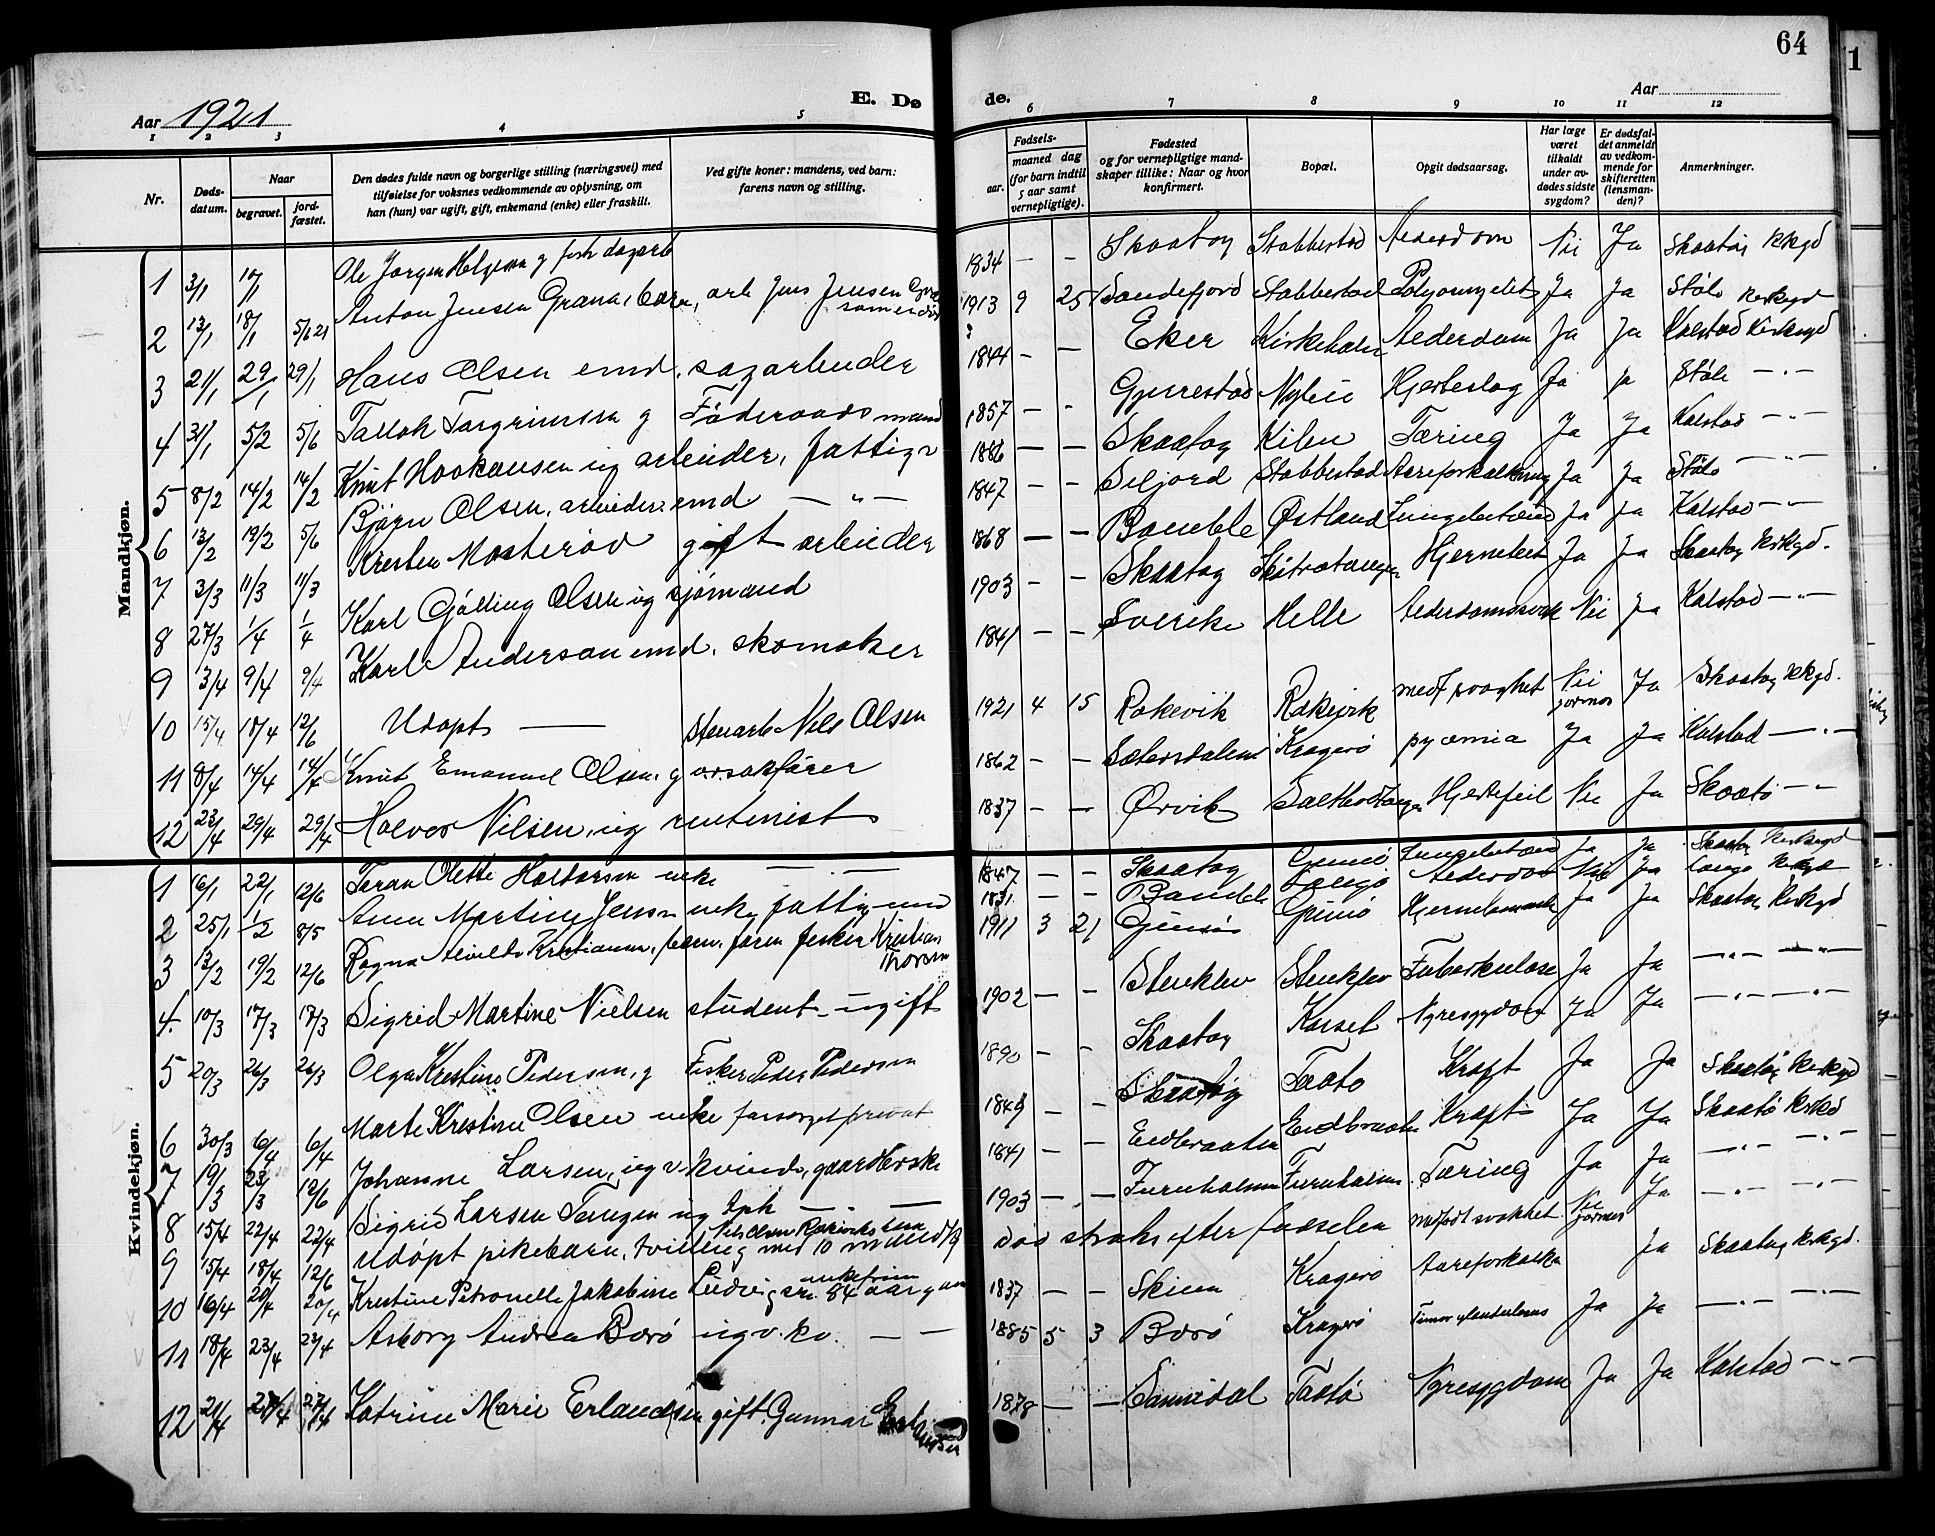 64
Aar 1921
E. Dø
de.
Aar
1 2 3 4 5 6 7 8 9 10 11 12
Nr.
Døds-datum.
Naar
begravet.
jord-fæstet.
Den dødes fulde navn og borgerlige stilling (næringsvei) med tilføielse for voksnes vedkommende av oplysning, om han (hun) var ugift, gift, enkemand (enke) eller fraskilt.
Ved gifte koner: mandens, ved barn: farens navn og stilling.
Fødsels-
aar.
maaned dag (for barn indtil 5 aar samt vernepligtige).
Fødested og for vernepligtige mand-skaper tillike: Naar og hvor konfirmert.
Bopæl.
Opgit dødsaarsag.
Har læge været tilkaldt under av-dødes sidste sygdom?
Er dødsfal-det anmeldt av vedkom-mende for skifteretten (lensman-den)?
Anmerkninger.
Mandkjøn.
1 3/1 10/1 Ole Jørgen Helgesen g dagarb 1834 — - Skaatøy Stabbestad Alderdom Nei Ja Skaatøy kkgd
2 13/1 18/1 5/6 21 Anton Jensen Grana, barn, arb Jens Jensen 1913 9 25 Sandefjord Stabbestad Ja Ja Støle kirkegd
3 21/1 29/1 29/1 Hans Olsen emd. sagarbeider 1844 - — Eker Kirkeholm Alderdom Ja Ja Kalstad Kirkegd
4 31/1 5/2 5/6 Tallok Torgrimsen g Føderaadsmand 1857 — - Gjerrestad Hjerteslag Ja ja Støle — " —
5 8/2 14/2 14/2 Knut Hookansen ug arbeider, fattig 1886 — — Skaatøy Kilen Tæring Ja Ja Kalstad — " —
6 13/2 19/2 5/6 Bjørn Olsen, arbeider emd — " — 1847 - - Seljord Stabbestad Aareforkalkning Ja Ja Støle — " —
7 3/3 11/3 11/3 Kresten Mosterød gift arbeider 1868 — — Bamble Østland Lungebetænd Ja Ja Kalstad — " —
8 27/3 1/4 1/4 Karl Gjølling Olsen ug sjømand 1903 — - Skaatøy Hjernebet Ja Ja Skaatøy kirkgd.
9 3/4 9/4 9/4 Karl Anderson emd. skomaker 1841 — — Sverike Helle Alderdomssvak Nei Ja Kalstad — " —
10 15/4 18/4 12/6 Udøpt — Stenarb Nils Olsen 1921 4 15 Rakevik Rakevik medf svaghet Nei jormor Ja Skaatøy kkgd.
11 8/4 14/4 14/4 Knut Emanuel Olsen g orsakfører 1862 — - Sætersdalen Kragerø pyæmia Ja Ja Kalstad — " —
12 23/4 29/4 29/4 Halvor Nilsen, ug rentenist 1837 — — Ørvik Hjertefeil Nei Ja Skaatø — " —
Kvindekjøn.
1 16/1 22/1 12/6 Taran Olette Halvorsen enke 1847 — - Skaatøy Gumø Lungebetænd Ja Ja Skaatøy Kirkegd
2 25/1 1/2 8/5 Anne Martine Jensen enke, fattig 1831 — - Bamble Langø Alderdom Nei Ja Langø Kirkgd
3 13/2 19/2 12/6 Ragna Alvilde Kristiansen, barn, faren fisker Kristian Thorsen 1911 3 21 Gumø Gumø Ja Ja Skaatøy Kirkgd
4. 10/3 17/3 17/3 Sigrid Martine Nielsen student - ugift 1902 — - Stenklev Stenklev Tuberkulose Ja Ja — " — — " —
5 20/3 26/3 26/3 Olga Kristine Pedersen, g Fisker Peder Pedersen 1890 - - Skaatøy Karset Nyresygdom Ja Ja — " — — " —
6 30/3 6/4 6/4 Marte Kristine Olsen enke forsørget privat 1849 — - Skaatøy Taatø Kræft Ja Ja Skaatøy Kirkgd
7 19/3 23/3 12/6 Johanne Larsen, ug v. kvinde, 1841 — - Eidbraaten Eidbraaten Kræft Ja Ja Skaatø kirkd
8 15/4 22/4 22/4 Sigrid Larsen Tangen ug 1903 — — Furuholmen Furuholmen Tæring Ja Ja — " — — " —
9 15/4 18/4 12/6 udøpt pikebarn, tvilling med 10 mandkj Nils Olsen Rakeviks barn død straks efter fødselen medfødt svakhet Nei jormor Ja — " — — " —
10 16/4 20/4 20/4 Kristine Petronelle Jakobine Ludvigsen enkefru 84 aar gam 1837 — — Skien Kragerø Aareforkalkn Ja Skaatøy kirkgd.
11 18/4 23/4 23/4 Asborg Andrea Barø ug v. kv. — — 1885 5 3 Barø Kragerø Ja Ja — " — — " —
12 21/4 27/4 27/4 Katrine Marie Erlandsen gift. Gunnar 1878 — — Sannidal Taatø Nyresygdom Ja Ja Kalstad — " —